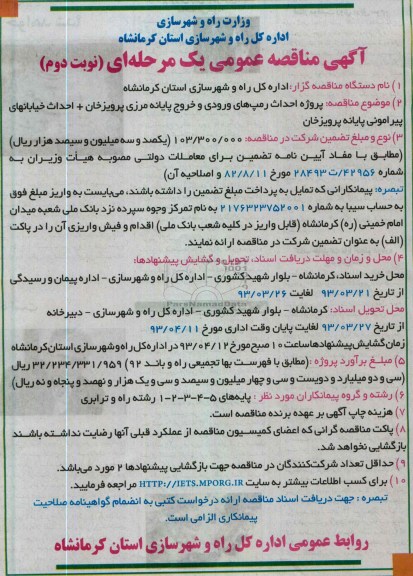 وزارت راه و شهرسازی
اداره کل راه و شهرسازی استان کرمانشاه
آگهی مناقصه عمومی یک مرحله‌ای (نوبت دوم)
۱) نام دستگاه مناقصه گزار: اداره کل راه و شهرسازی استان کرمانشاه
۲) موضوع مناقصه: پروژه احداث رمپ‌های ورودی و خروج پایانه مرزی پرویزخان + احداث خیابانهای
پیرامونی پایانه پرویزخان
۳) نوع و مبلغ تضمین شرکت در مناقصه: ۱۰۳/۳۰۰/۰۰۰ (یکصد و سه میلیون و سیصد هزار ریال)
(مطابق با مفاد آیین نامه تضمین برای معاملات دولتی مصوبه هیأت وزیران به
شماره ۴۲۹۵۶/ت ۲۸۴۹۳ مورخ ۸۲/۸/۱۱ و اصلاحیه آن)
تبصره: پیمانکارانی که تمایل به پرداخت مبلغ تضمین را داشته باشند، می‌بایست به واریز مبلغ فوق
به حساب سیبا به شماره ۲۱۷۶۳۲۳۷۵۲۰۰۱ به نام تمرکز وجوه سپرده نزد بانک ملی شعبه میدان
امام خمینی (ره) کرمانشاه (قابل واریز در کلیه شعب بانک ملی) اقدام و فیش واریزی آن را در پاکت
(الف) به عنوان تضمین شرکت در مناقصه ارائه نمایند.
۴) محل و زمان و مهلت دریافت اسناد، تحویل و گشایش پیشنهادها:
محل خرید اسناد: کرمانشاه - بلوار شهید کشوری - اداره کل راه و شهرسازی - اداره پیمان و رسیدگی
از تاریخ ۹۳/۰۳/۲۱ لغایت ۹۳/۰۳/۲۶
محل تحویل اسناد: کرمانشاه - بلوار شهید کشوری - اداره کل راه و شهرسازی - دبیرخانه
از تاریخ ۹۳/۰۳/۲۷ لغایت پایان وقت اداری مورخ ۹۳/۰۴/۱۱
زمان گشایش پیشنهادها ساعت ۱۰ صبح مورخ ۹۳/۰۴/۱۲ در اداره کل راه و شهرسازی استان کرمانشاه
۵) مبلغ برآورد پروژه: (مطابق با فهرست بها تجمیعی راه و باند ۹۲) ۳۲/۲۳۴/۳۳۱/۹۵۹ ریال
(سی و دو میلیارد و دویست و سی و چهار میلیون و سیصد و سی و یک هزار و نهصد و پنجاه و نه ریال)
۶) رشته و گروه پیمانکاران مورد نظر: پایه‌های ۵-۴-۳-۲-۱ رشته راه و ترابری
۷) هزینه چاپ آگهی بر عهده برنده مناقصه است.
۸) پاکت مناقصه گرانی که اعضای کمیسیون مناقصه از عملکرد قبلی آنها رضایت نداشته باشند
بازگشایی نخواهد شد.
۹) حداقل تعداد شرکت‌کنندگان در مناقصه جهت بازگشایی پیشنهادها ۲ مورد می‌باشد.
۱۰) برای کسب اطلاعات بیشتر به سایت HTTP://IETS.MPORG.IR مراجعه فرمایید.
تبصره: جهت دریافت اسناد مناقصه ارائه درخواست کتبی به انضمام گواهینامه صلاحیت
پیمانکاری الزامی است.
روابط عمومی اداره کل راه و شهرسازی استان کرمانشاه